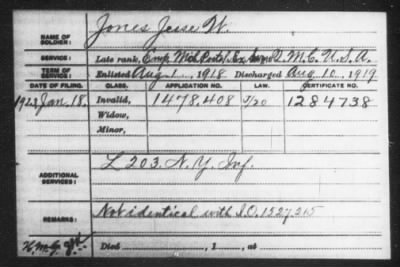 NAME OF SOLDIER: Jones Jesse W.
SERVICE: Late rank, Q.M.C. U.S.A.
TERM OF SERVICE: Enlisted Aug. 1, 1918 Discharged Aug 10, 1919
DATE OF FILING. CLASS. APPLICATION NO. LAW. CERTIFICATE NO.
1923 Jan. 18. Invalid, 1478.408 1284738
Widow,
Minor,
ADDITIONAL SERVICES: L 203. N.Y. Inf.
REMARKS: Not identical with S.O. 1527215
Died , 1 , at